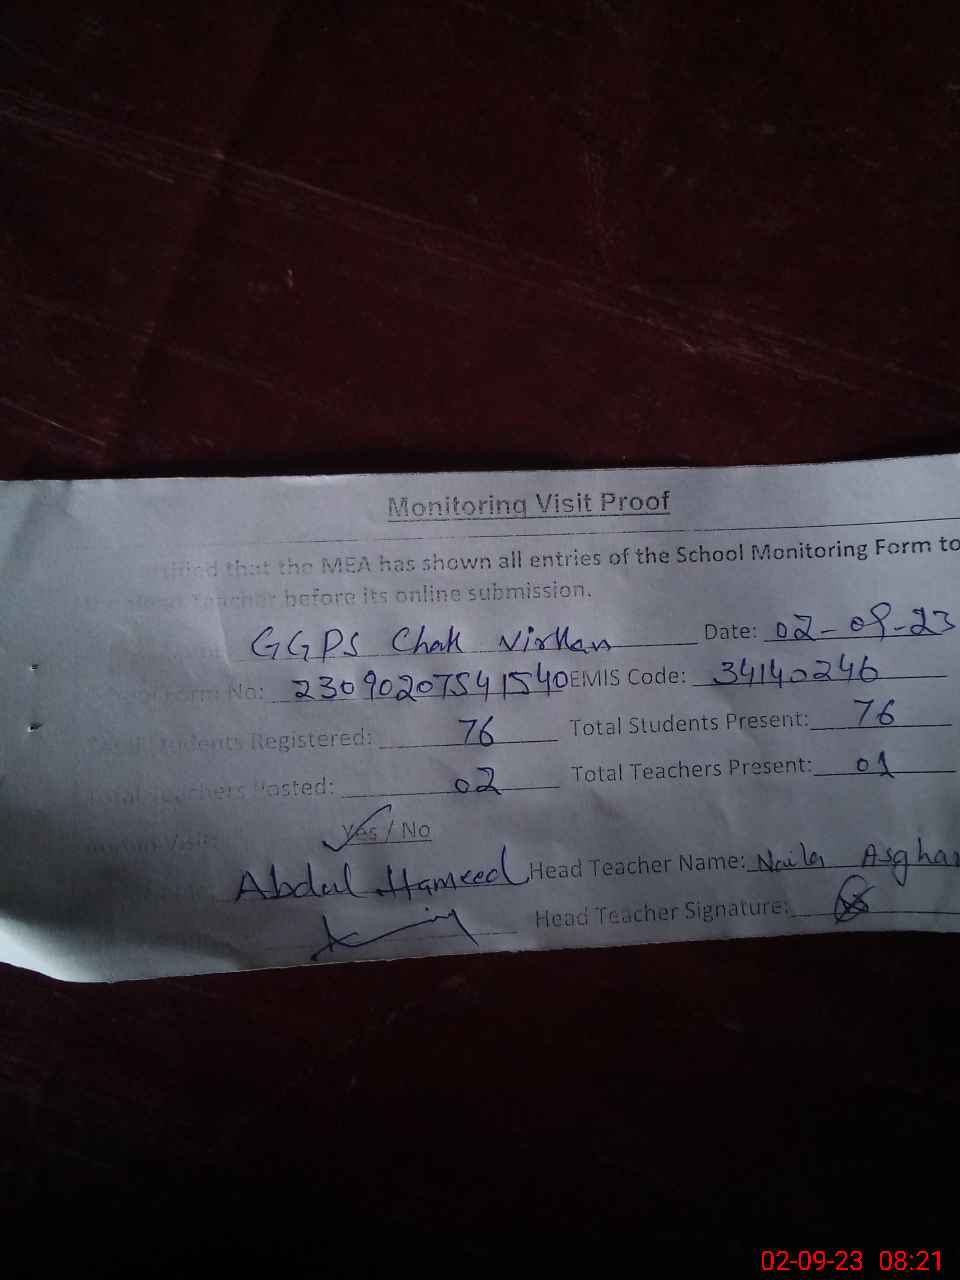 Monitoring Visit Proof
that the MEA has shown all entries of the School Monitoring Form to
Teacher before its online submission.
GGPS Chak Date: 02-09-23
Form No: 23090207541540 EMIS Code: 34140246
Students Registered: 76 Total Students Present: 76
Total Teachers Posted: 02 Total Teachers Present: 01
Visit Yes / No
Abdul Hameed Head Teacher Name: Naila Asghar
Head Teacher Signature:
02-09-23 08:21